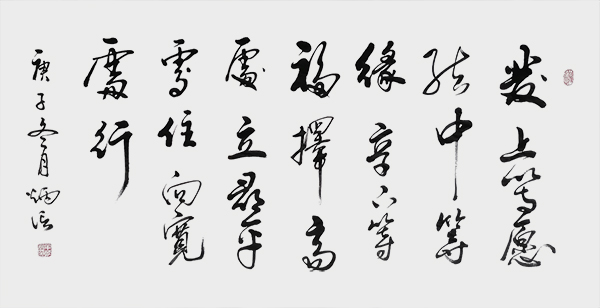 發上等愿
结中等
緣享下等
福擇高
處立尋平
處住向寬
處行
庚子冬月炳